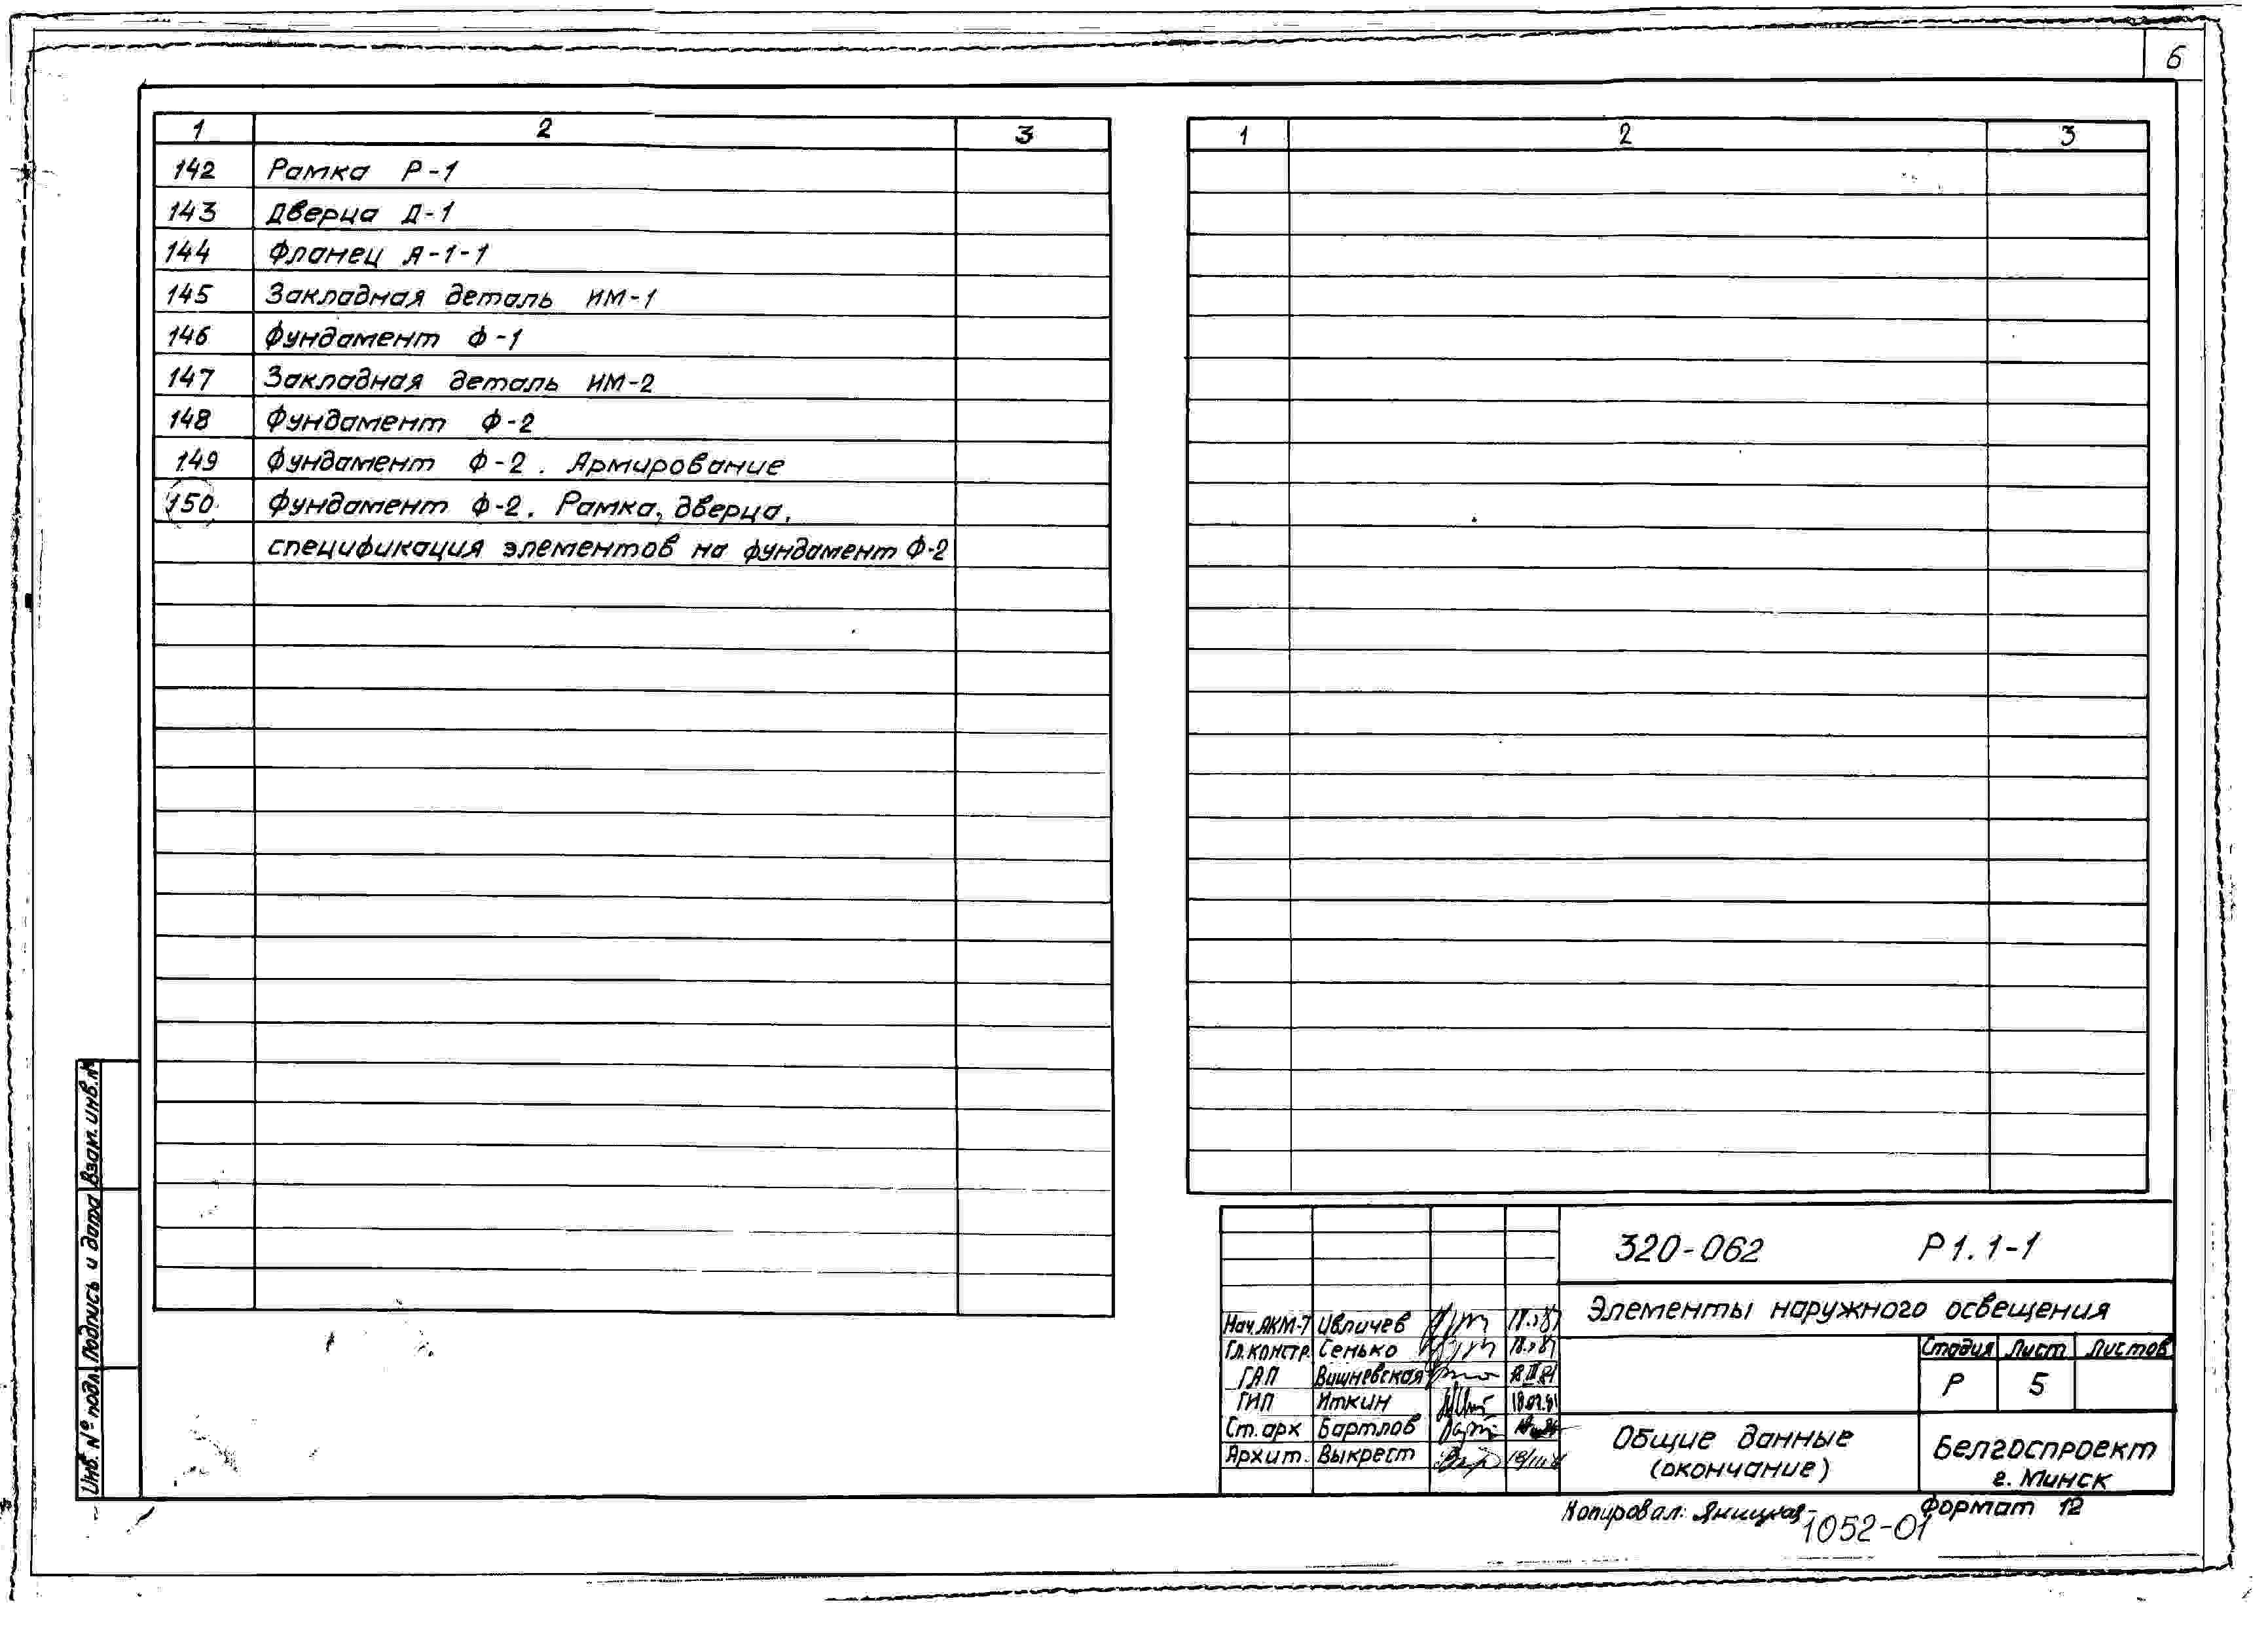 6
1 2 3
142 Рамка Р-1
143 Дверца Д-1
144 Фланец Я-1-1
145 Закладная деталь ИМ-1
146 Фундамент Ф-1
147 Закладная деталь ИМ-2
148 Фундамент Ф-2
149 Фундамент Ф-2. Армирование
150 Фундамент Ф-2. Рамка, дверца,
спецификация элементов на фундамент Ф-2
1 2 3
Взам. инв. №
Подпись и дата
Инв. № подл.
320-062 Р1.1-1
Элементы наружного освещения
Нач. АКМ-7 Ивличев
Гл. констр. Сенько
ГАП Вишневская
ГИП Иткин 18.03.81
Ст. арх Бартлов
Архит. Выкрест
Стадия Лист Листов
Р 5
Общие данные
(окончание)
Белгоспроект
г. Минск
Копировал: Яницкая
Формат 12
1052-01